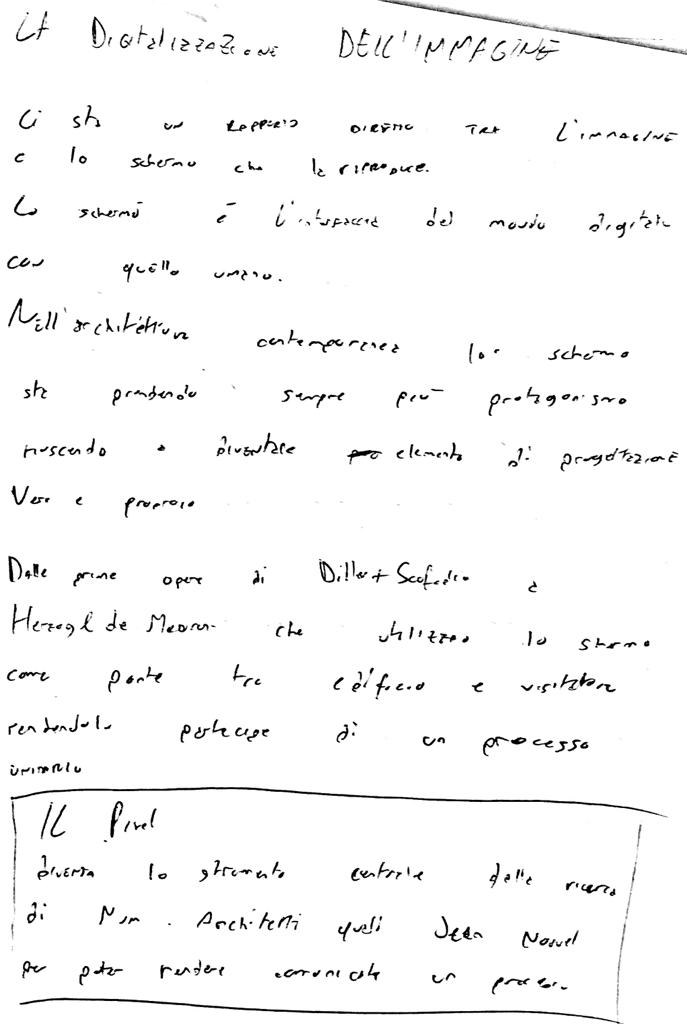 LA DIGITALIZZAZIONE DELL'IMMAGINE
Ci sta un RAPPORTO DIRETTO TRA L'IMMAGINE
e lo schermo che la riproduce.
Lo schermo è l'interfaccia del mondo digitale
con quello umano.
Nell'architettura contemporanea lo schermo
sta prendendo sempre più protagonismo
riuscendo a diventare elemento di progettazione
Vero e proprio
Dalle prime opere di Diller + Scofidio a
Herzog & de Meuron che utilizzano lo schermo
come ponte tra edificio e visitatore
rendendolo partecipe di un processo
unitario
IL Pixel
diventa lo strumento centrale della ricerca
di Architetti quali Jean Nouvel
per poter rendere un